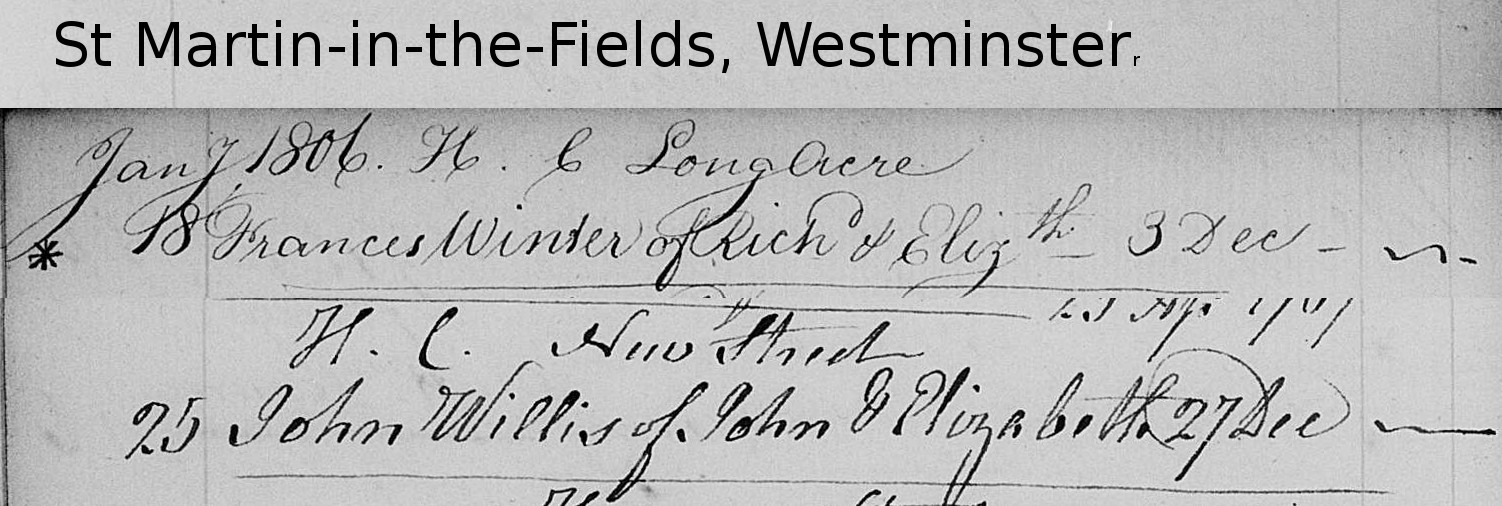 St Martin-in-the-Fields, Westminster
Jany 1806. H. C Long Acre
* 18 Frances Winter of Richd & Elizth 3 Dec - ~ -
H. C. New Street
25 John Willis of John & Elizabeth 27 Dec —